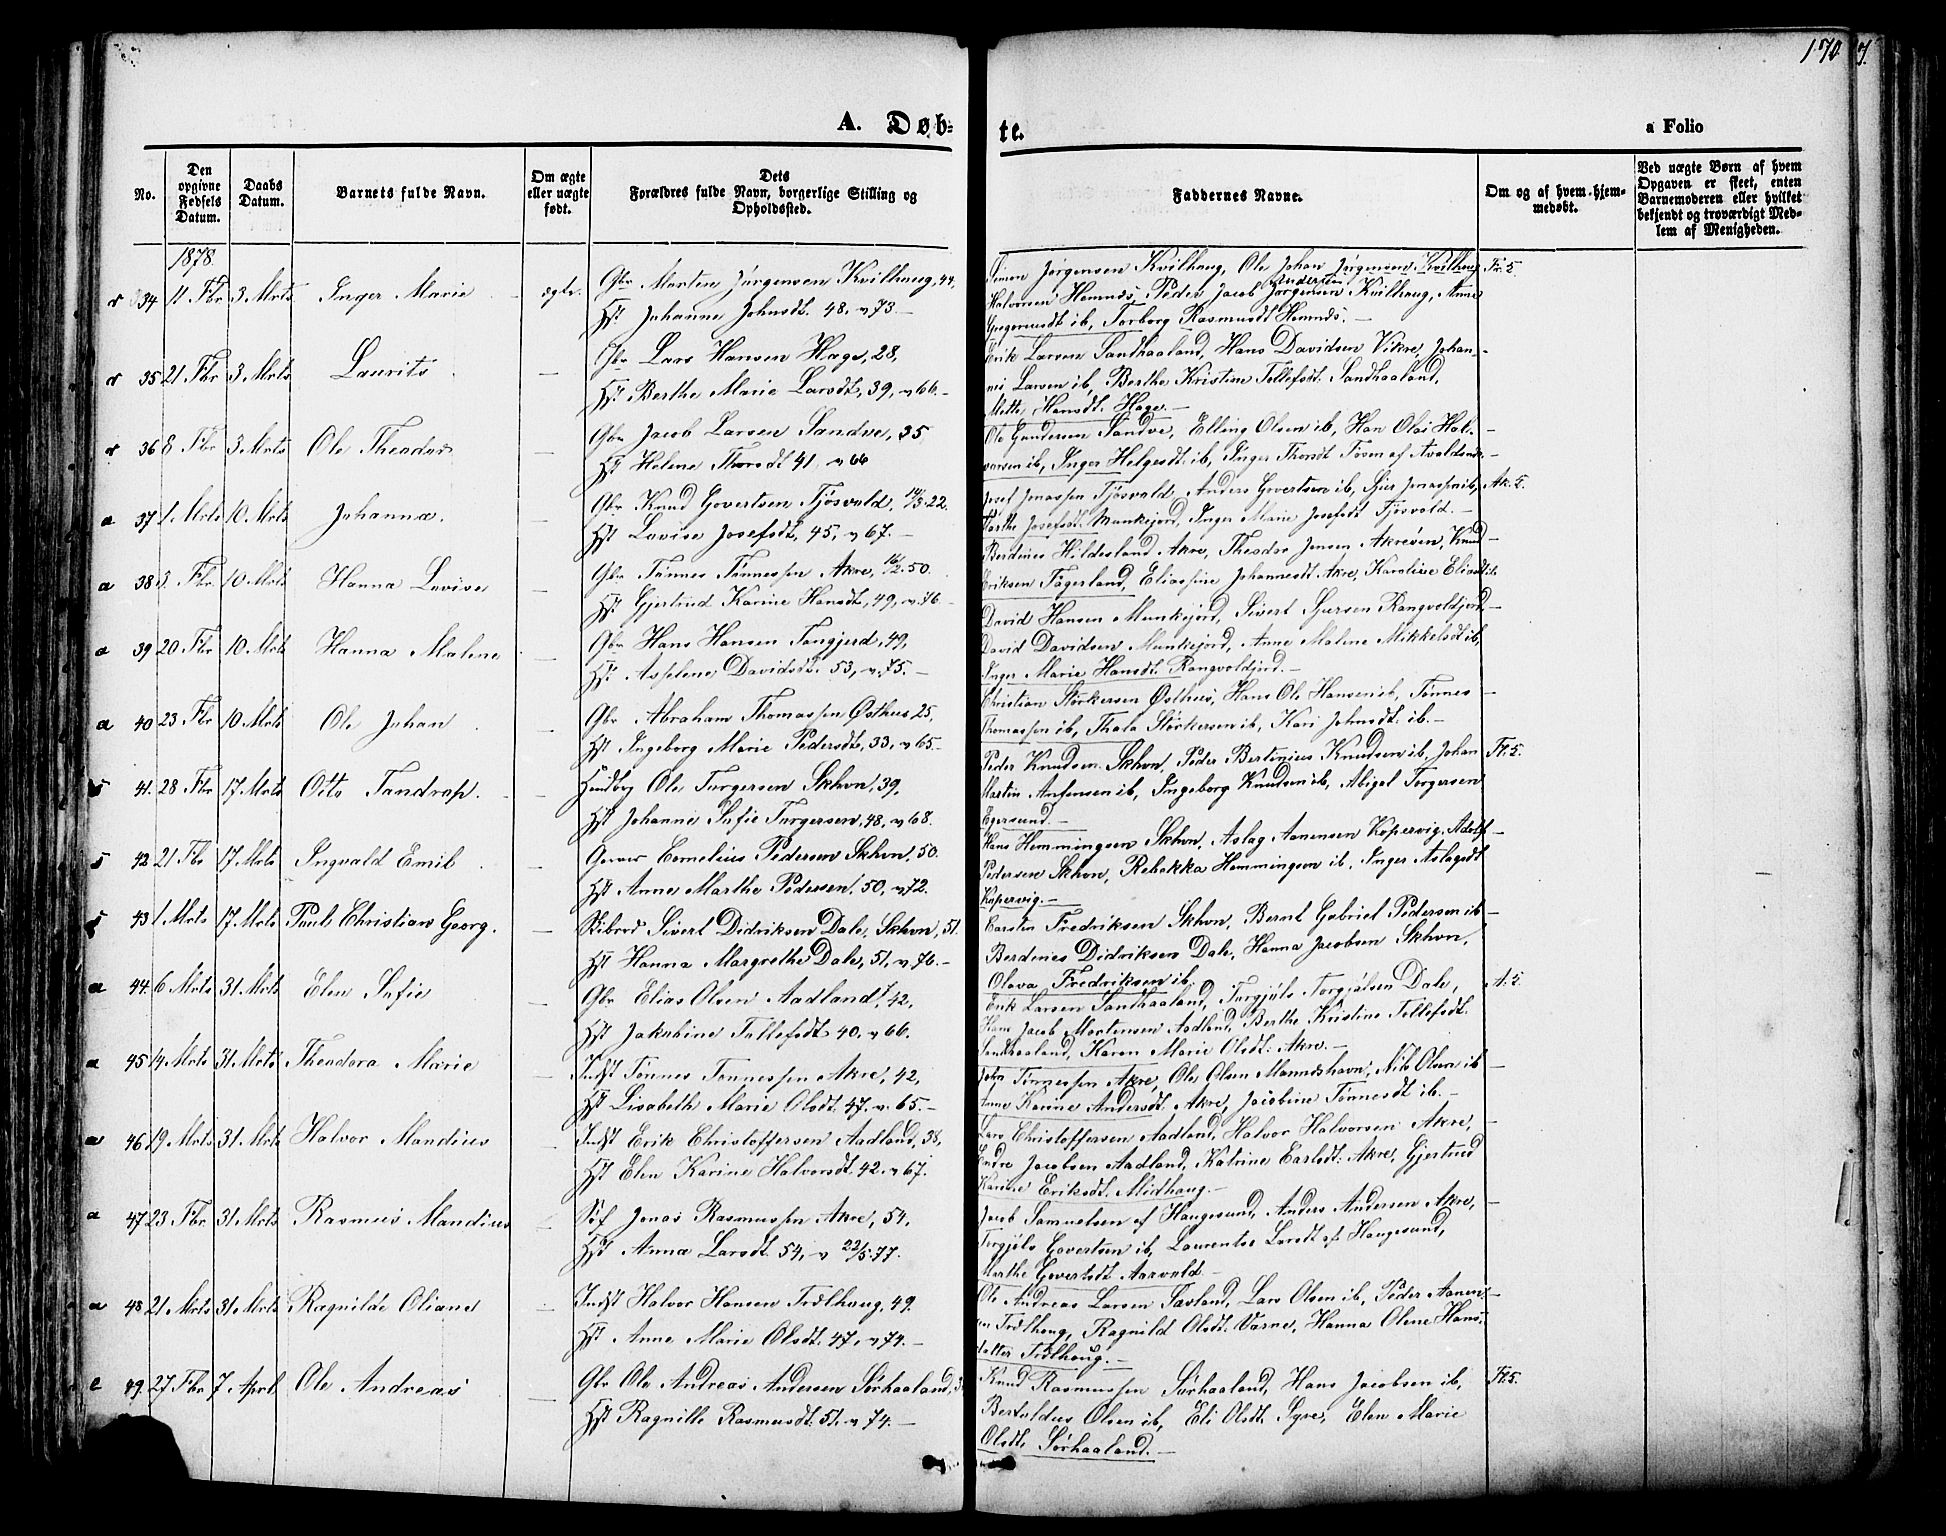 170
A. Døb-
te.
a Folio
No.
Den opgivne Fødsels Datum.
Daabs Datum.
Barnets fulde Navn.
Om ægte eller uægte født.
Dets
Forældres fulde Navn, borgerlige Stilling og
Opholdssted.
Faddernes Navne.
Om og af hvem hjem-
medøbt.
Ved uægte Børn af hvem
Opgaven er skeet, enten
Barnemoderen eller hvilket
bekjendt og troværdigt Med-
lem af Menigheden.
1878.
34 11 Fbr 3 Mrts Inger Marie ægte. Gbr Morten Jørgensen Kvilhaug, 44,
Hst Johanne Johnsdt. 48, v 73.
Simon Jørgensen Kvilhaug, Ole Johan Jørgensen Kvilhaug
Halvorsen Hemnds, Peder Jacob Jørgensen Kvilhaug, Anne
Gregoriusdt ib, Torborg Rasmusdt Hemnds.
35 21 Fbr 3 Mrts Laurits — Gbr Lars Hansen Hage, 28,
Hst Berthe Marie Larsdt, 39, v 66.
Erik Larsen Sandhaaland, Hans Davidsen Vikre, Johan-
nes Larsen ib, Berthe Kristine Tollefsdt. Sandhaaland,
Mette Hansdt. Hage.
36 8 Fbr 3 Mrts Ole Theodor — Gbr Jacob Larsen Sandve, 35
Hst Helene Thorsdt 41, v 66
Ole Gundersen Sandve, Elling Olsen ib, Han Olai Hal-
vorsen ib, Inger Helgesdt. ib, Inger Thorsdt Tøsen af Avaldsnes
37 1 Mrts 10 Mrts Johanna. — Gbr Knud Govertsen Tjøsvold, 14/3 22.
Hst Lovise Josefsdt, 45, v 67.
Josef Jonassen Tjøsvold, Anders Govertsen ib, Sjur Jonassen ib,
Marthe Josefsdt. Munkejord, Inger Marie Josefsdt Tjøsvold.
38 5 Fbr 10 Mrts Hanna Lovise — Gbr Tønnes Tønnessen Akre, 16/2 50.
Hst Gjertrud Karine Hansdt, 49, v 76.
Berdines Hildesland Akre, Theodor Jensen Akreøen, Knud
Eriksen Fagerland, Eliassine Johannesdt. Akre, Karoline Eliasdt ib.
39 20 Fbr 10 Mrts Hanna Malene — Gbr Hans Hansen Tangjerd, 49,
Hst Asselene Davidsdt. 53, v 75.
David Hansen Munkejord, Sivert Sjursen Rangvoldjord,
David Davidsen Munkejord, Anne Malene Mikkelsdt ib,
Inger Marie Hansdt. Rangvoldjord.
40 23 Fbr 10 Mrts Ole Johan — Gbr Abraham Thomassen Østhus 25,
Hst Ingeborg Marie Pedersdt, 33, v 65.
Christian Størkersen Østhus, Hans Ole Hansen ib, Tønnes
Thomassen ib, Thala Størkersen ib, Kari Johnsdt. ib.
41. 28 Fbr 17 Mrts Otto Tandrap. — Ole Torgersen Skhvn, 39,
Hst Johanne Sofie Torgersen, 48, v 68.
Peder Knudsen Skhvn, Peder Bertinius Knudsen ib, Johan
Martin Anfensen ib, Ingeborg Knudsen ib, Abigel Torgersen
Egersund.
42 21 Fbr 17 Mrts Ingvald Emil — Cornelius Pedersen Skhvn, 50.
Hst Anne Marthe Pedersen, 50, v 72.
Hans Hemmingsen Skhvn, Aslag Aanensen Kopervig, Adolf
Pedersen Skhvn, Rebekka Hemmingsen ib, Inger Aslagsdt
Kopervig.
43 1 Mrts 17 Mrts Pauls Christian Georg. — Sivert Didriksen Dale, Skhvn, 51.
Hst Hanna Margrethe Dale, 51, v 76.
Carsten Fredriksen Skhvn, Bernt Gabriel Pedersen ib
Berdines Didriksen Dale, Hanna Jacobsen Skhvn,
Olava Fredriksen ib.
44. 6 Mrts 31 Mrts Elen Sofie — Gbr Elias Olsen Aadland, 42,
Hst Jakobine Tollefsdt 40. v 66.
Erik Larsen Sandhaaland, Torgjuls Torgjulsen Dale,
Hans Jacob Mortensen Aadland, Berthe Kristine Tollefsdt.
Sandhaaland, Karen Marie Olsdt. Akre.
45 14 Mrts 31 Mrts Theodora Marie — Indst Tønnes Tønnessen Akre, 42,
Hst Lisabeth Marie Olsdt. 47. v. 65.
John Tønnessen Akre, Ole Olsen Manndshavn, Nils Olsen ib
Anne Karine Andersdt. Akre, Jacobine Tønnesdt ib.
46 19 Mrts 31 Mrts Halvor Mandius — Indst Erik Christoffersen Aadland, 38,
Hst Elen Karine Halvorsdt. 42. v 67.
Lars Christoffersen Aadland, Halvor Halvorsen Akre,
Endre Jacobsen Aadland, Katrine Carlsdt. Akre, Gjertrud
Karine Eriksdt. Midhaug.
47 23 Fbr 31 Mrts Rasmus Mandius — Søf Jonas Rasmussen Akre, 54,
Hst Anna Larsdt. 54, v 22/5 77.
Jacob Samuelsen af Haugesund, Anders Andersen Akre,
Torgjuls Govertsen ib, Laurentse Larsdt af Haugesund,
Marthe Govertsdt Aarvold.
48 21 Mrts 31 Mrts Ragnilde Oliane — Indst Halvor Hansen Trælhaug, 49.
Hst Anne Marie Olsdt. 47, v 74.
Ole Andreas Larsen Søvland, Lars Olsen ib, Peder Aanen-
sen Trælhaug, Ragnild Olsdt. Varne, Hanna Olene Hans-
datter Trælhaug.
49. 27 Fbr 7 April Ole Andreas — Gbr Ole Andreas Andersen Sørhaaland,
Hst Ragnille Rasmusdt. 51. v 74.
Knud Rasmussen Sørhaaland, Hans Jacobsen ib,
Bertoldus Olsen ib, Eli Olsdt. Syre, Elen Marie
Olsdt. Sørhaaland.